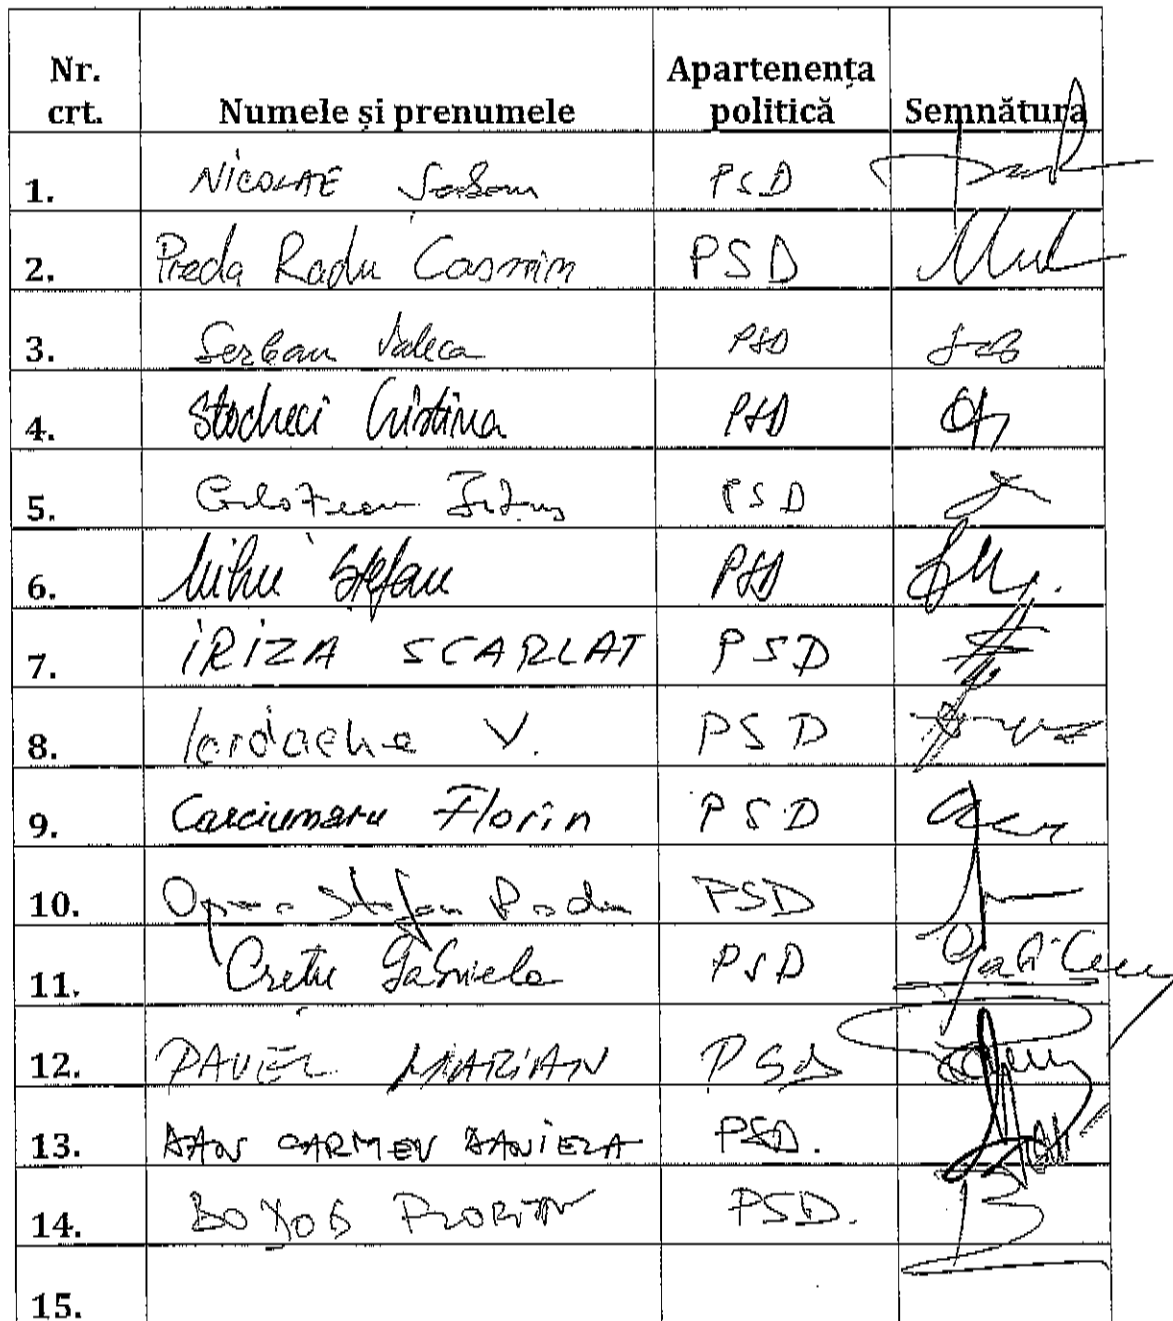 Nr. crt. Numele și prenumele Apartenența politică Semnătura
1. NICOLAE Serban PSD
2. Preda Radu Cosmin PSD
3. Serban Valeca PSD
4. Stocheci Cristina PSD
5. Corlatean Titus PSD
6. Mihu Stefan PSD
7. IRIZA SCARLAT PSD
8. Iordache V. PSD
9. Carciumaru Florin PSD
10. Oprea Stefan Radu PSD
11. Cretu Gabriela PSD
12. PAVEL MARIAN PSD
13. DAN CARMEN DANIELA PSD.
14. PSD.
15.